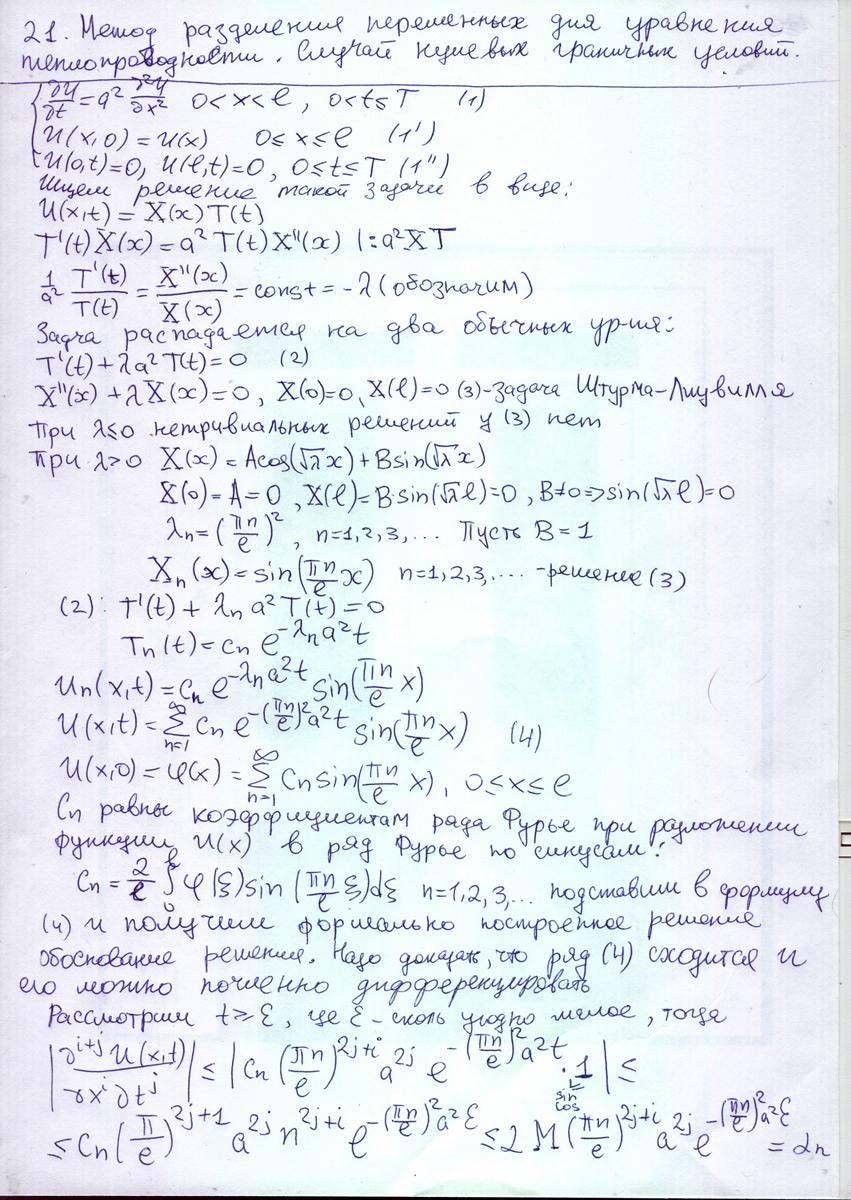 21. Метод разделения переменных для уравнения
теплопроводности. Случай нулевых граничных условий.
∂U/∂t = a² ∂²U/∂x²  0<x<l, 0<t≤T (1)
U(x,0) = U(x)  0≤x≤l (1')
U(0,t)=0, U(l,t)=0, 0≤t≤T (1'')
Ищем решение такой задачи в виде:
U(x,t) = X(x)T(t)
T'(t)X(x) = a² T(t)X''(x) |: a²XT
1/a² T'(t)/T(t) = X''(x)/X(x) = const = -λ (обозначим)
Задча распадается на два обычных ур-ия:
T'(t)+λa²T(t)=0 (2)
X''(x)+λX(x)=0, X(0)=0, X(l)=0 (3)-задача Штурма-Лиувилля
При λ≤0 нетривиальных решений у (3) нет
При λ>0 X(x) = Acos(√λx)+Bsin(√λx)
X(0)=A=0, X(l)=B·sin(√λl)=0, B≠0=>sin(√λl)=0
λn=(πn/l)², n=1,2,3,... Пусть B=1
Xn(x)=sin(πn/l x) n=1,2,3,... -решение (3)
(2): T'(t)+λn a²T(t)=0
Tn(t)=cn e^(-λn a²t)
Un(x,t)=cn e^(-λn a²t) sin(πn/l x)
U(x,t)=∑(n=1,∞) Cn e^(-(πn/l)²a²t) sin(πn/l x) (4)
U(x,0)=φ(x)=∑(n=1,∞) Cn sin(πn/l x), 0≤x≤l
Cn равны коэффициентам ряда Фурье при разложении
функции U(x) в ряд Фурье по синусам:
Cn = 2/l ∫(0,l) φ(ξ)sin(πn/l ξ)dξ n=1,2,3,... подставим в формулу
(4) и получим формально построенное решение
обоснование решения. Надо доказать, что ряд (4) сходится и
его можно почленно дифференцировать
Рассмотрим t≥ε, где ε-сколь угодно малое, тогда
|∂^(i+j) U(x,t)/∂x^i ∂t^j| ≤ |Cn (πn/l)^(2j+i) a^(2j) e^(-(πn/l)²a²t) · 1| ≤
sin
cos
≤ Cn(π/l)^(2j+1) a^(2j) n^(2j+i) e^(-(πn/l)²a²ε) ≤ 2M(πn/l)^(2j+i) a^(2j) e^(-(πn/l)²a²ε) = αn